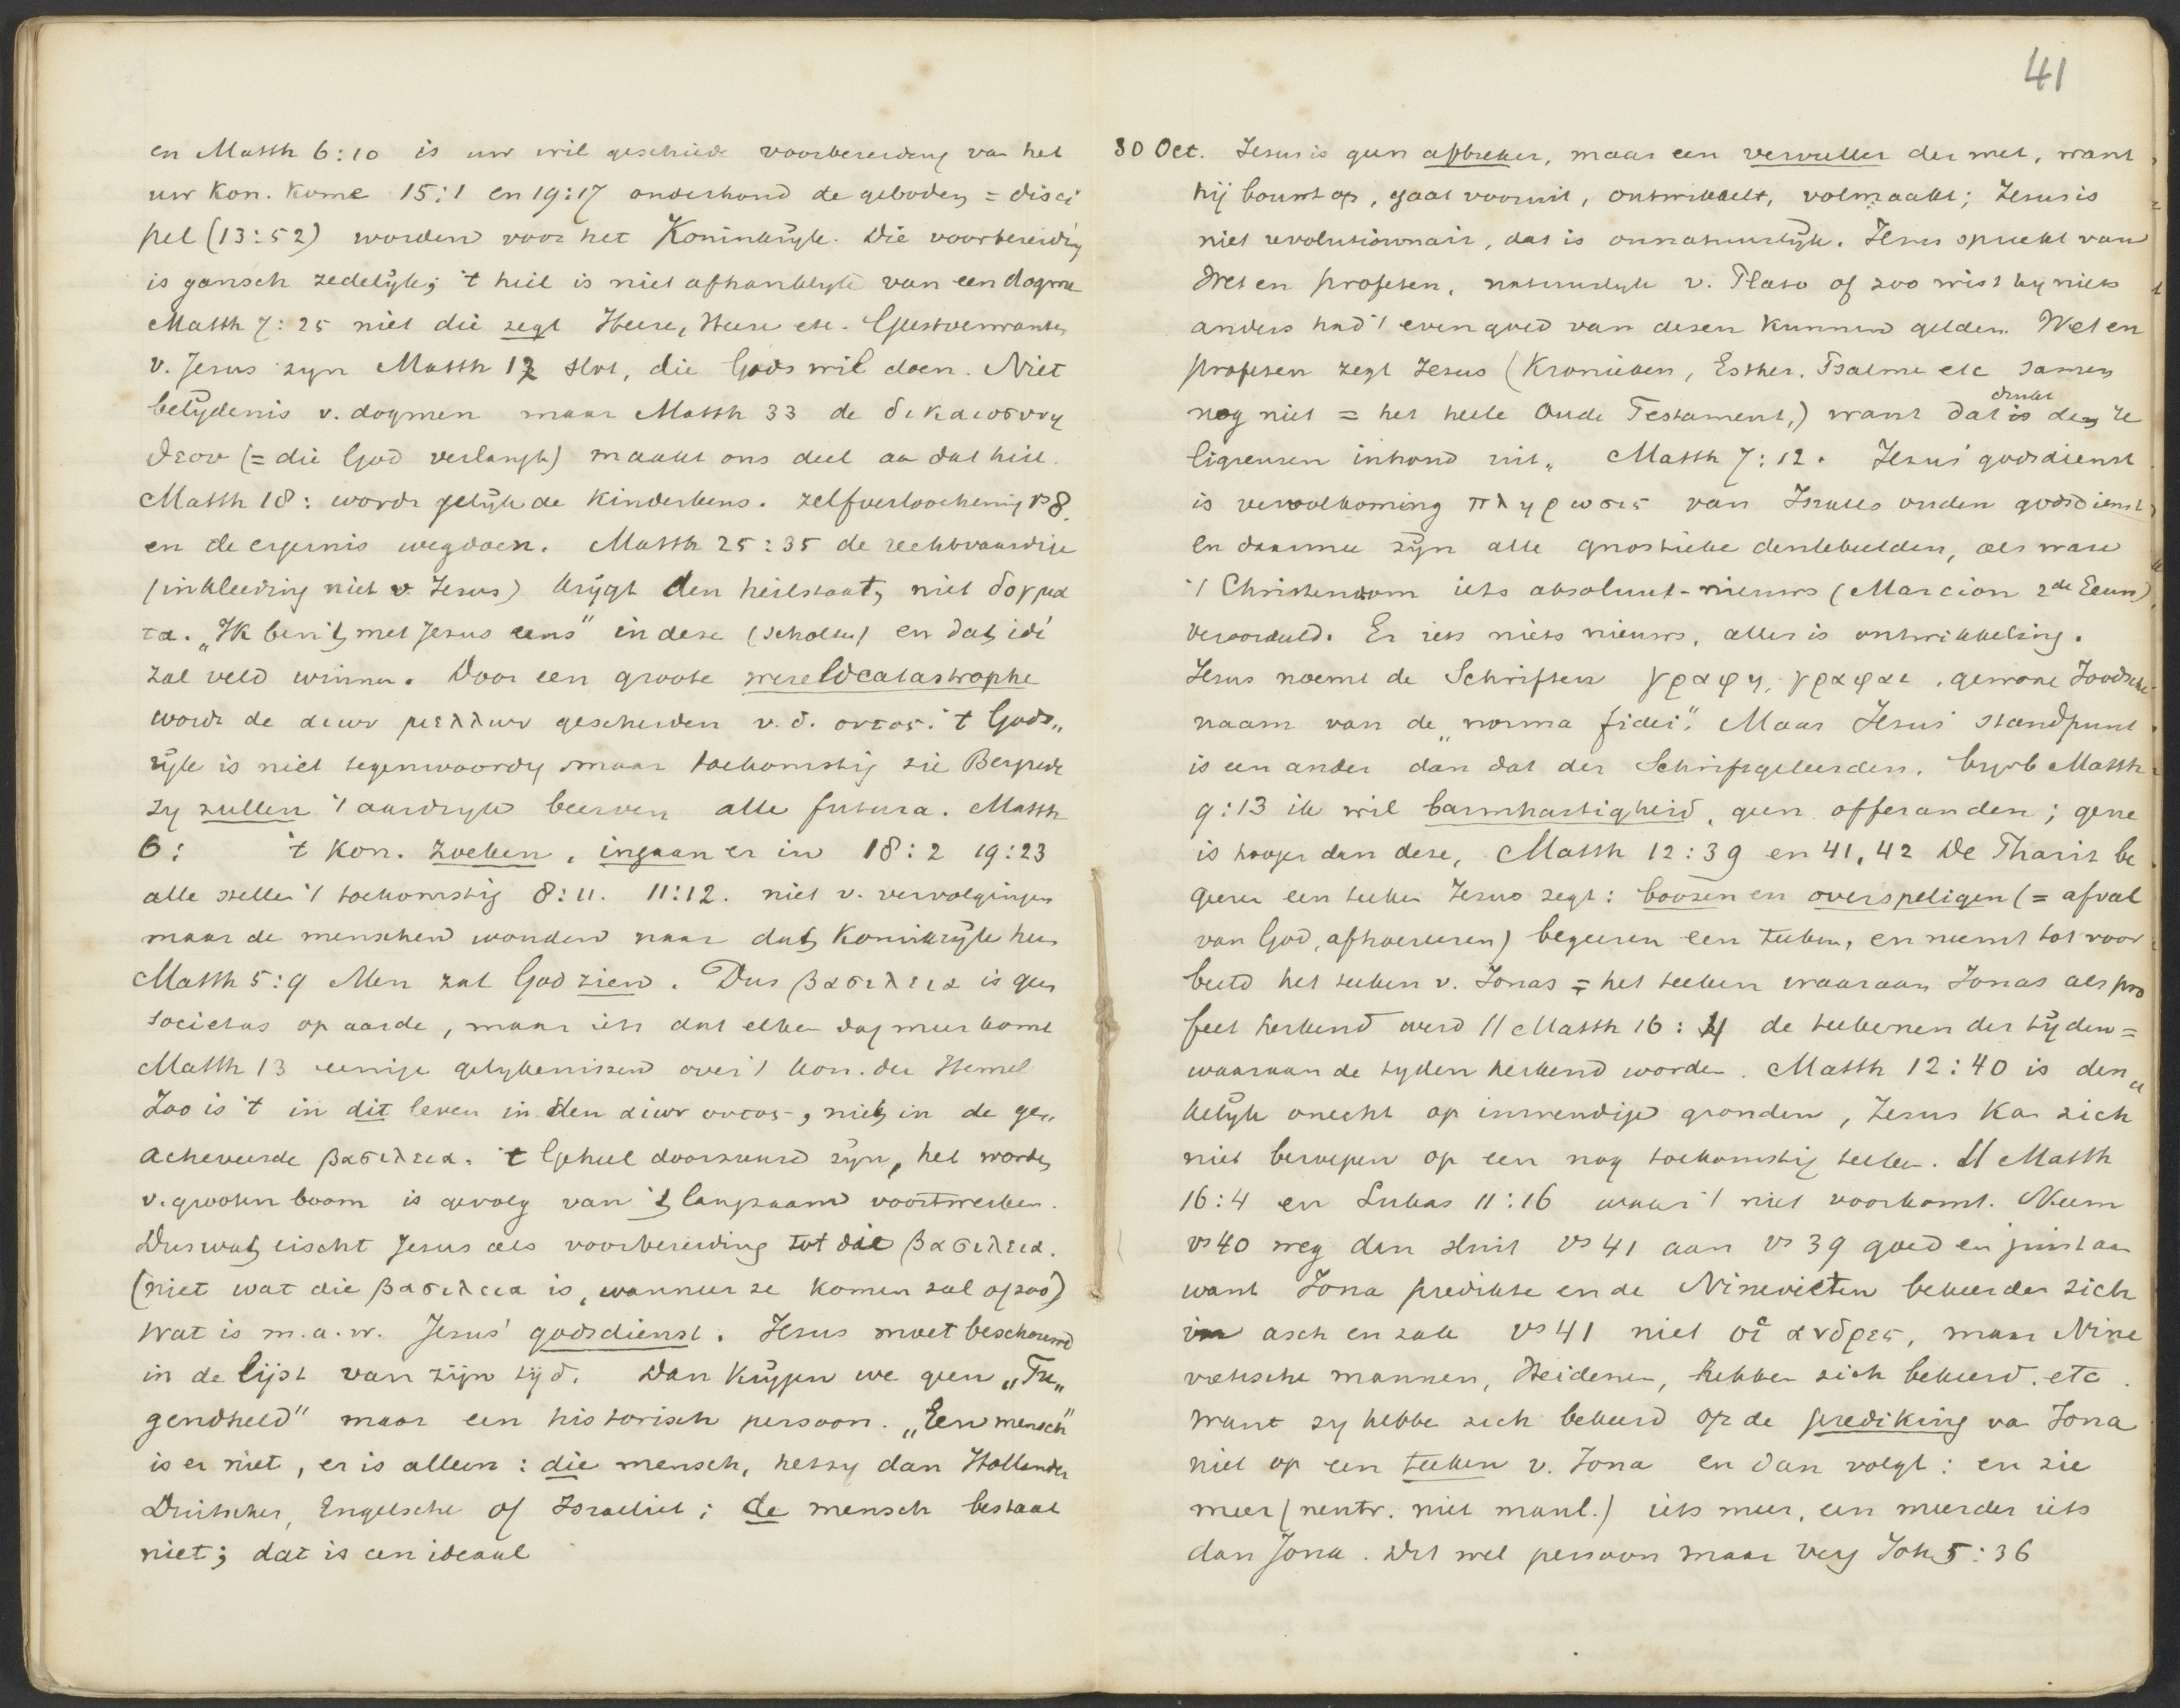 en Matth 6:10 is uw wil geschiede voorbereiding van het
uw Kon. Kome 15:1 en 19:17 onderhoud de geboden = disci
pel (13:52) worden voor het Koninkrijk. Die voorbereiding
is gansch zedelijk; 't heil is niet afhanklijk van een dogma
Matth 7:25 niet die zegt Heere, Heere etc. Geestverwanten
v. Jesus zyn Matth 12 slot, die Gods wil doen. Niet
belijdenis v. dogmen maar Matth 33 de δικαιοσυνη
θεου (= die God verlangt) maakt ons deel aa dat heil.
Matth 18: wordt gelijk de Kinderkens. Zelfverloochening vs 8.
en de ergernis wegdoen. Matth 25:35 de rechtvaardige
(inkleeding niet v. Jesus) krijgt den heilstaat, niet δογμα
τα. „Ik ben 't met Jesus eens" in deze (Scholten) en dat idé
zal veld winnen. Door een groote wereldcatastrophe
wordt de αιων μελλων gescheiden v. d. ουτος. 't Gods„
rijk is niet tegenwoordig maar toekomstig zie Bergrede
zy zullen 't aardryk beerven alle futura. Matth
6: 't Kon. zoeken, ingaan er in 18:2 19:23
alle stellen 't toekomstig 8:11. 11:12. niet v. vervolgingen
maar de menschen worden naar dat Koninkrijk hee
Matth 5:9 Men zal God zien. Dus βασιλεια is geen
societas op aarde, maar iets dat elken dag meer komt
Matth 13 eenige gelykenissen over 't kon. der Hemel
Zoo is 't in dit leven in den αιων ουτος, niet in de ge„
acheveerde βασιλεια. 't Geheel doorzuurd zijn, het worden
v. grooten boom is gevolg van 't langzaam voortwerken.
Dus wat eischt Jesus als voorbereiding tot die βασιλεια.
(niet wat die βασιλεια is, wanneer ze komen zal of zoo)
Wat is m.a.w. Jesus' godsdienst. Jesus moet beschouwd
in de lijst van zijn tijd. Dan krijgen we geen „Tu„
gendheld" maar een historisch persoon. „Een mensch"
is er niet, er is alleen: die mensch, hetzy dan Hollander
Duitscher, Engelsche of Israeliet; de mensch bestaat
niet; dat is een ideaal
41
30 Oct. Jesus is geen afbreker, maar een vervuller der wet, want
hij bouwt op, gaat vooruit, ontwikkelt, volmaakt; Jesus is
niet revolutionnair, dat is onnatuurlijk. Jesus spreekt van
Wet en profeten, natuurlijk v. Plato of zoo wist hij niets
anders had 't evengoed van dezen kunnen gelden. Wet en
profeten zegt Jesus (Kronieken, Esther, Psalme etc samen
nog niet = het heele Oude Testament,) want dat is drukt den re
ligieusen inhoud uit„ Matth 7:12. Jesus' godsdienst
is vervolkoming πληρωσις van Israels ouden godsdienst
en daarmee zijn alle gnostieke denkbeelden, als ware
't Christendom iets absoluut-nieuws (Marcion 2de Eeuw)
veroordeeld. Er iets niets nieuws, alles is ontwikkeling.
Jesus noemt de Schriften γραφη, γραφαι, gewone Joodsche
naam van de „norma fidei". Maar Jesus' standpunt
is een ander dan dat der Schriftgeleerden. byvb Matth
9:13 ik wil barmhartigheid, geen offeranden; gene
is hooger dan deze, Matth 12:39 en 41, 42 De Phariz be
geeren een teeken Jesus zegt: boozen en overspeligen (= afval
van God, afhoereeren) begeeren een teeken, en neemt tot voor
beeld het teeken v. Jonas = het teeken waaraan Jonas als pro
feet herkend werd // Matth 16:4 de teekenen der tijden =
waaraan de tyden herkend worden. Matth 12:40 is den„
kelijk onecht op inwendige gronden, Jesus kan zich
niet beroepen op een nog toekomstig teeken. // Matth
16:4 en Lukas 11:16 waar 't niet voorkomt. Neem
vs 40 weg dan sluit vs 41 aan vs 39 goed en juist aan
want Jona predikte en de Ninevieten bekeerden zich
in asch en zak vs 41 niet οἱ ανδρες, maar Nine
vietische mannen, Heidenen, hebben zich bekeerd. etc.
Want zy hebben zich bekeerd op de prediking va Jona
niet op een teeken v. Jona en dan volgt: en zie
meer (neutr. niet manl.) iets meer, een meerder iets
dan Jona. Dit wel persoon maar verg Joh 5:36